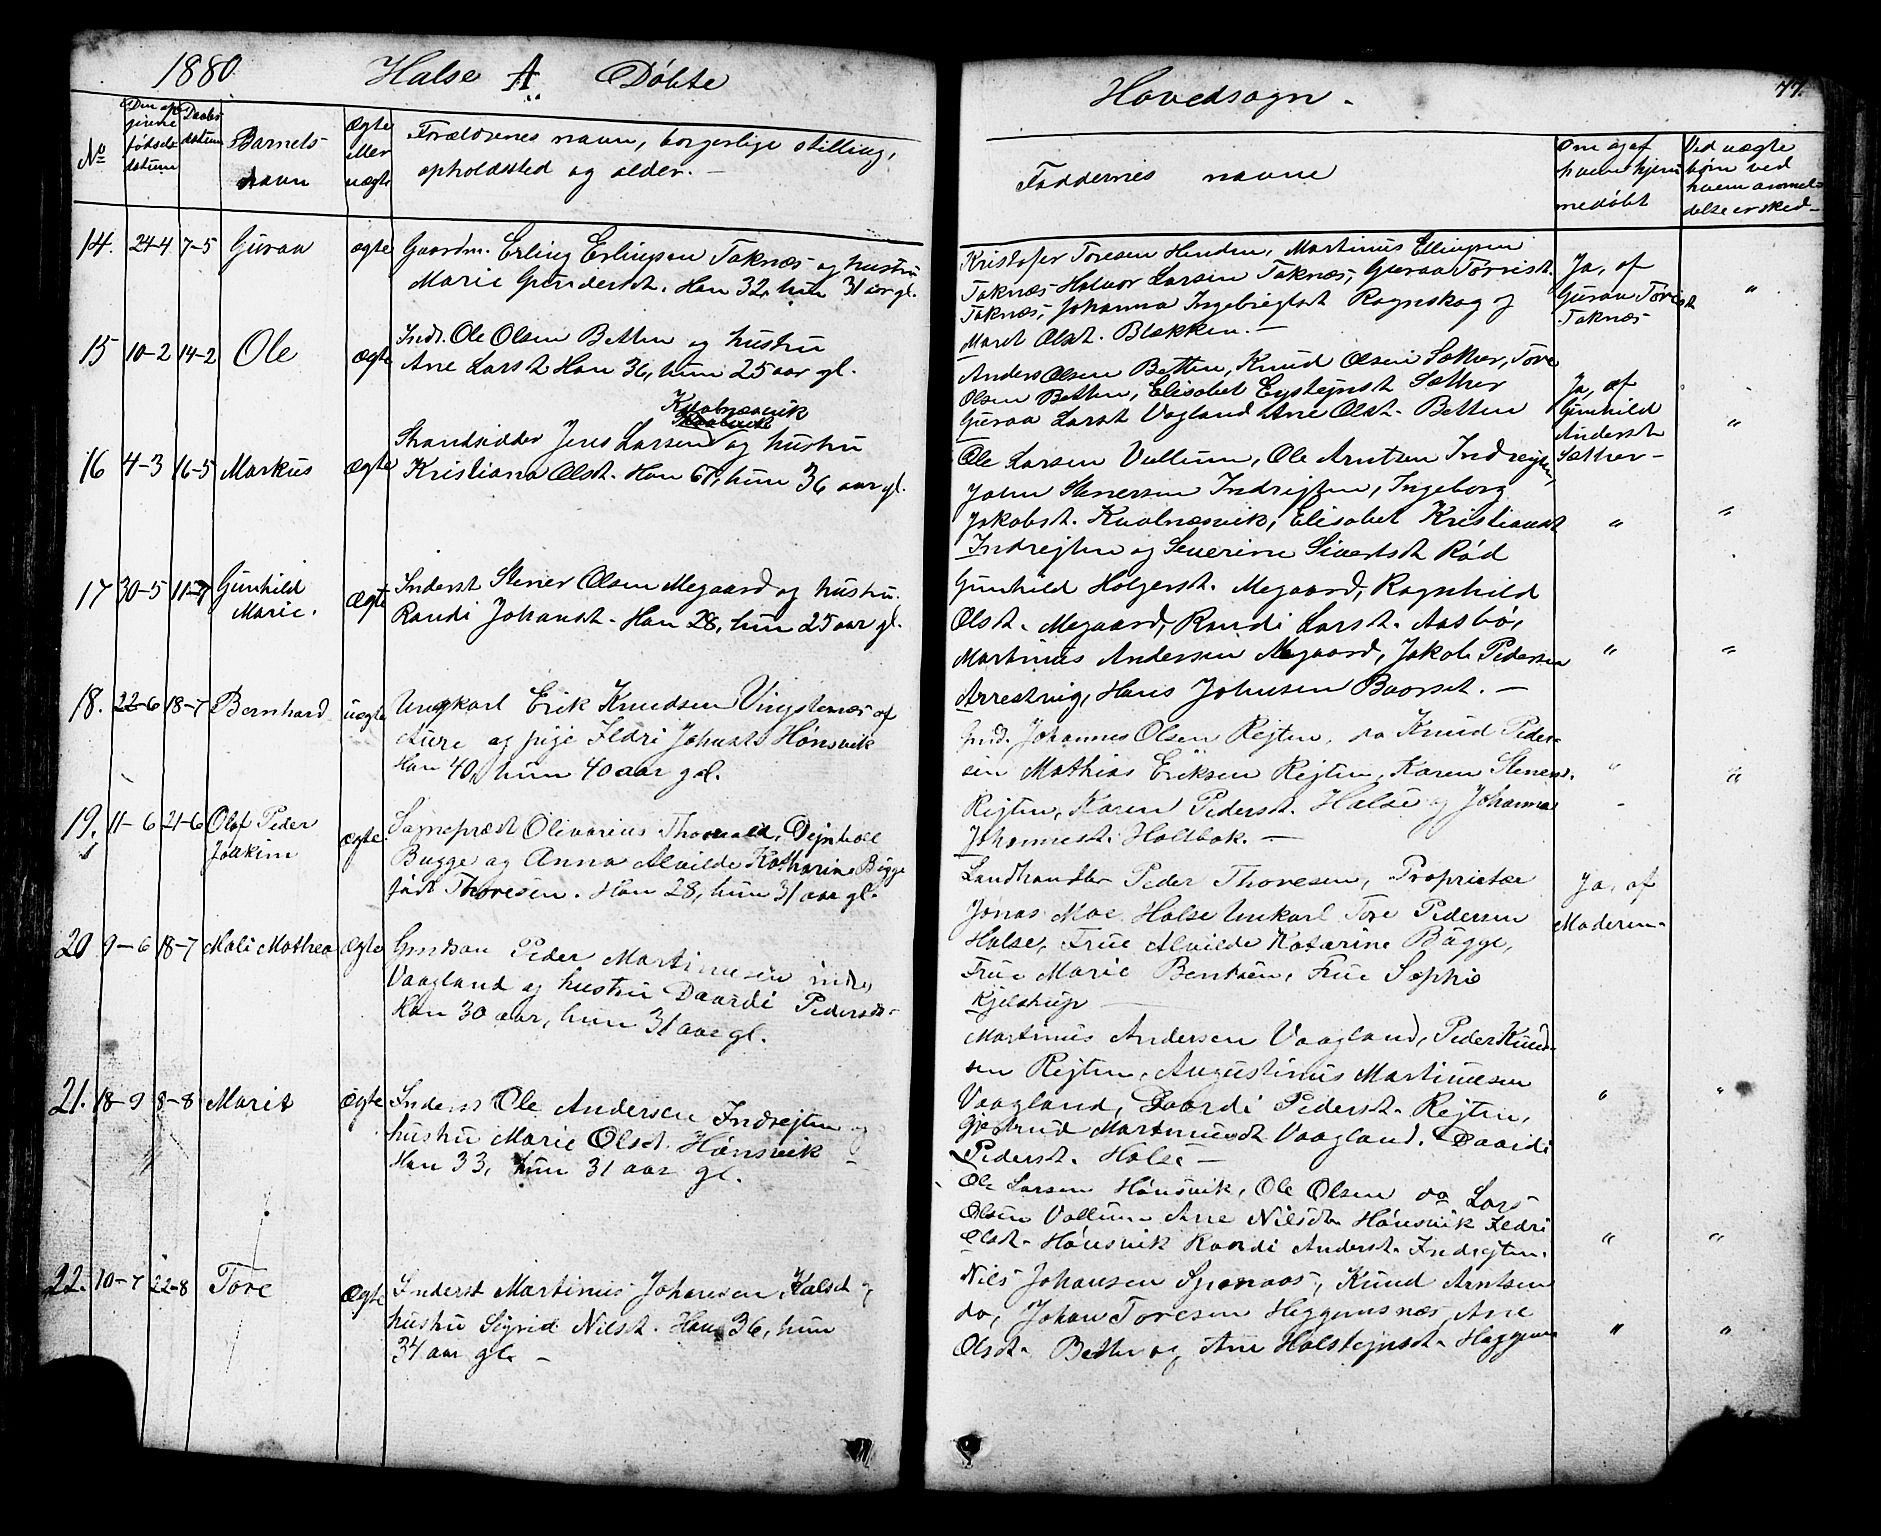 1880. Halse A Døbte
Hovedsogn.
77.
No
Den op
givne
fødsels
datum
Daabs
datum
Barnets
navn
Ægte
eller
uægte
Forældrenes navn, borgerlige stilling,
opholdssted og alder.
Faddernes navne
Om og af
hvem hjem
medøbt
Ved uægte
børn ved
hvem anmel-
delse er sked
14. 24-4 7-5 Guraa ægte Gaardm. Erling Erlingsen Taknæs og hustru
Marie Gundersd. Han 32, hun 31 aar gl.
Kristofer Toresen Henden, Martinus Ellingsen
Taknæs, Halvor Larsen Taknæs, Guraa Torrisd.
Taknæs, Johanna Ingebrigtsdt Rognskog og
Maret Olsdt. Blekken.
Ja, af
Guraa Torisdt
Taknæs
"
15 10-2 14-2 Ole ægte Indt. Ole Olsen Betten og hustru
Ane Larsdt Han 36, hun 25 aar gl.
Anders Olsen Betten, Knud Olsen Sæther, Tore
Olsen Betten, Elisabet Eystejnsdt Sæther
Guraa Larsdt Vagland Ane Olsdt. Betten
Ja, af
Gunhild
Andersdt
Sæther
"
16 4-3 16-5 Markus ægte Strandsidder Jens Larsen Kvalnæsvik og hustru
Kristiana Olsdt. Han 67, hun 36 aar gl.
Ole Larsen Vullum, Ole Arntsen Indrejten,
John Stenersen Indrejten, Ingeborg
Jakobsdt. Kvalnæsvik, Elisabet Kristiansdt
Indrejten og Severine Sivertsdt Rød
"
"
17 30-5 11-7 Gunhild
Marie.
Ægte Inderst Stener Olsen Megaard og hustru
Randi Johansdt. Han 28, hun 25 aar gl.
Gunhild Holgersdt. Megaard, Ragnhild
Olsdt. Megaard, Randi Larsdt. Aasbø,
Martinus Andersen Megaard, Jakob Pedersen
Arrestvig, Hans Johnsen Baorset.
"
"
18. 22-6 18-7 Bernhard uægte Ungkarl Erik Knudsen Vingstenæs af
Aure og pige Ildri Johnsdt Hønsvik
Han 40, hun 40 aar gl.
Gmd. Johannes Olsen Rejten, do Knud Peder-
sen Mathias Eriksen Rejten, Karen Stenersd.
Rejten, Karen Pedersdt. Halse og Johanna
Johannesdt. Holtbak.
"
"
19. 11-6 21-6 Olaf Peder
Joakim
ægte. Sognepræst Olivarius Thorvald Dejnboll
Bugge og Anna Alvilde Katharine Bugge
født Thoresen. Han 28, hun 31 aar gl.
Landhandler Peder Thoresen, Proprietær
Jonas Moe Halse Unkarl Tore Pedersen
Halse, Frue Alvilde Katarine Bugge,
Frue Marie Bentsen, Frue Sophie
Kjelstrup
Ja, af
Moderen.
20 9-6 18-7 Mali Mathea Ægte Gmdsøn Peder Martinusen indre
Vaagland og hustru Daardi Pedersdt.
Han 30 aar, hun 31 aar gl.
Martinus Andersen Vaagland, Peder Knud-
sen Rejten, Augustinus Martinusen
Vaagland, Daardi Pedersdt. Rejten,
Gjertrud Martinusdt Vaagland. Daardi
Pedersdt. Halse
"
"
21. 18-9 8-8 Marit ægte Inderst Ole Andersen Indrejten og
hustru Marie Olsdt. Hønsvik
Han 33, hun 31 aar gl.
Ole Larsen Hønsvik, Ole Olsen do Lars
Olsen Vollum Ane Nilsdt. Hønsvik Ildri
Olsdt. Hønsvik Randi Andersdt. Indrejten.
"
"
22. 10-7 22-8 Tore Ægte Inderst Martinus Johansen Kalset og
hustru Sigrid Nilsdt. Han 36, hun
34 aar gl.
Nils Johansen Spænaas, Knud Arntsen
do, Johan Toresen Heggemsnæs, Ane
Olsdt. Betten og Ane Halstejnsdt. Heggem
"
"